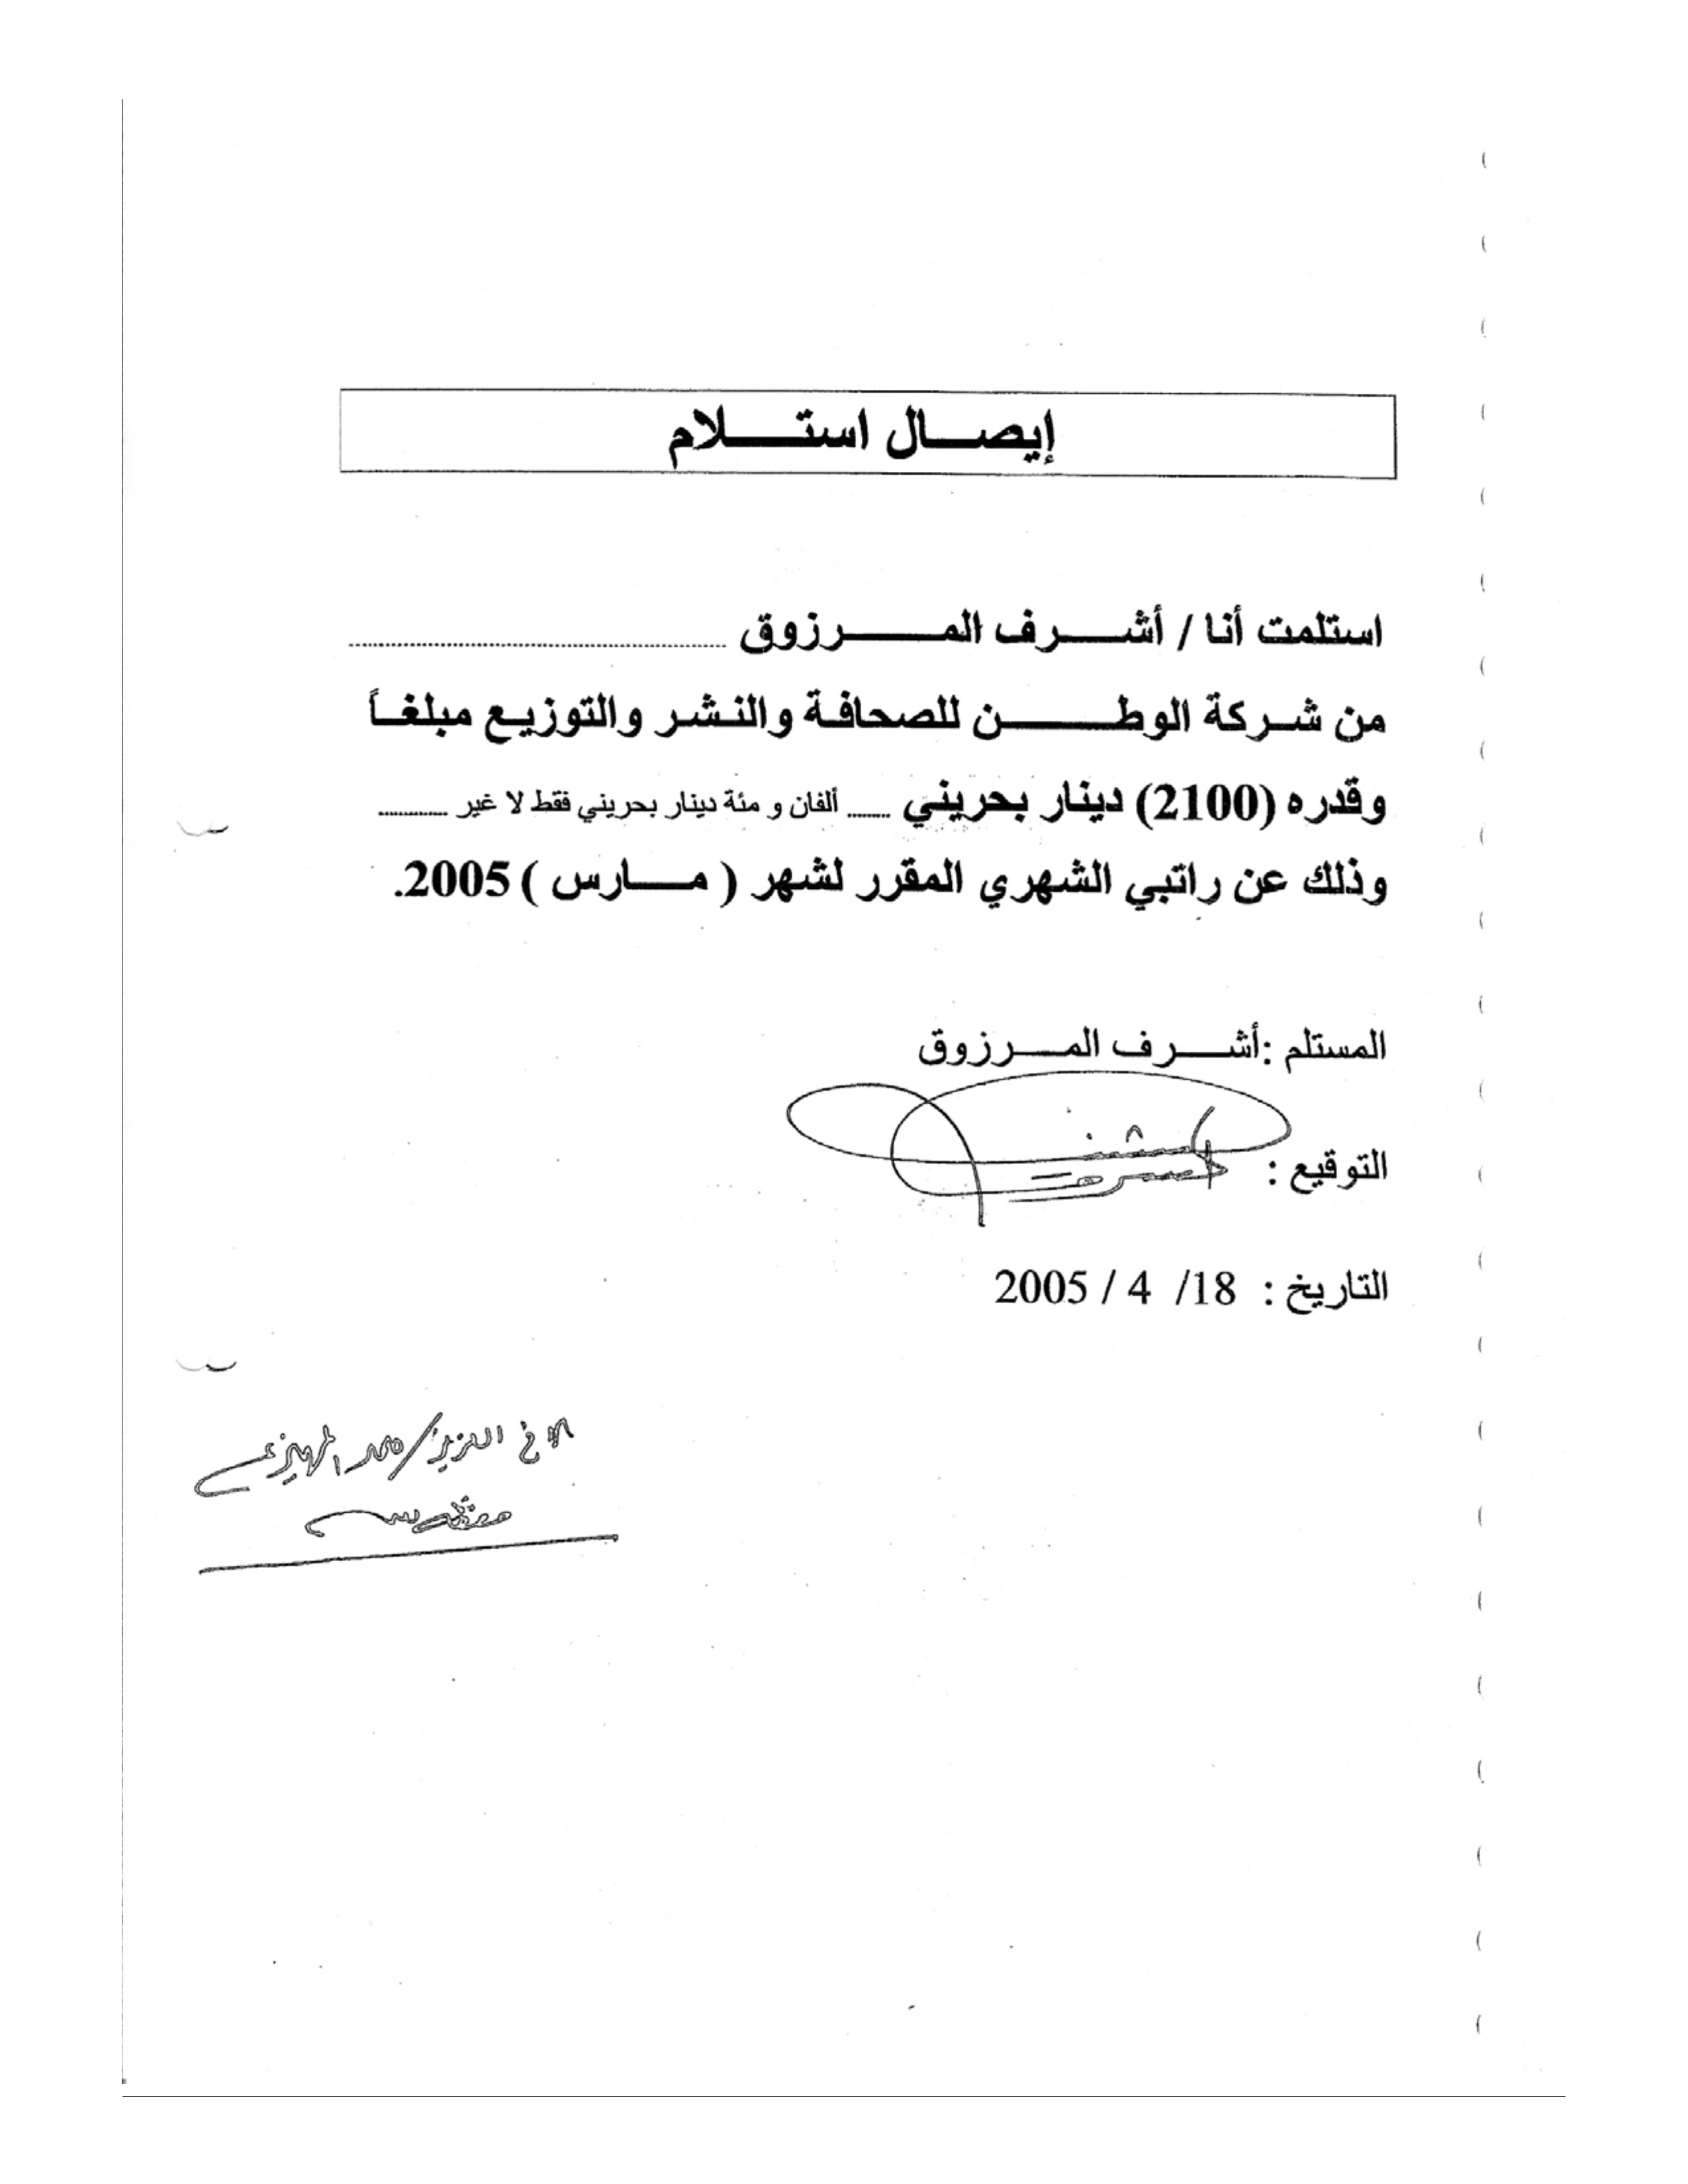 إيصال استلام
استلمت أنا / أشرف المرزوق ........................
من شركة الوطن للصحافة والنشر والتوزيع مبلغاً
وقدره (2100) دينار بحريني ........ ألفان و مئة دينار بحريني فقط لا غير ............
وذلك عن راتبي الشهري المقرر لشهر ( مارس ) 2005.
المستلم :أشرف المرزوق
التوقيع :
التاريخ : 18/ 4 / 2005
الأخ العزيز/